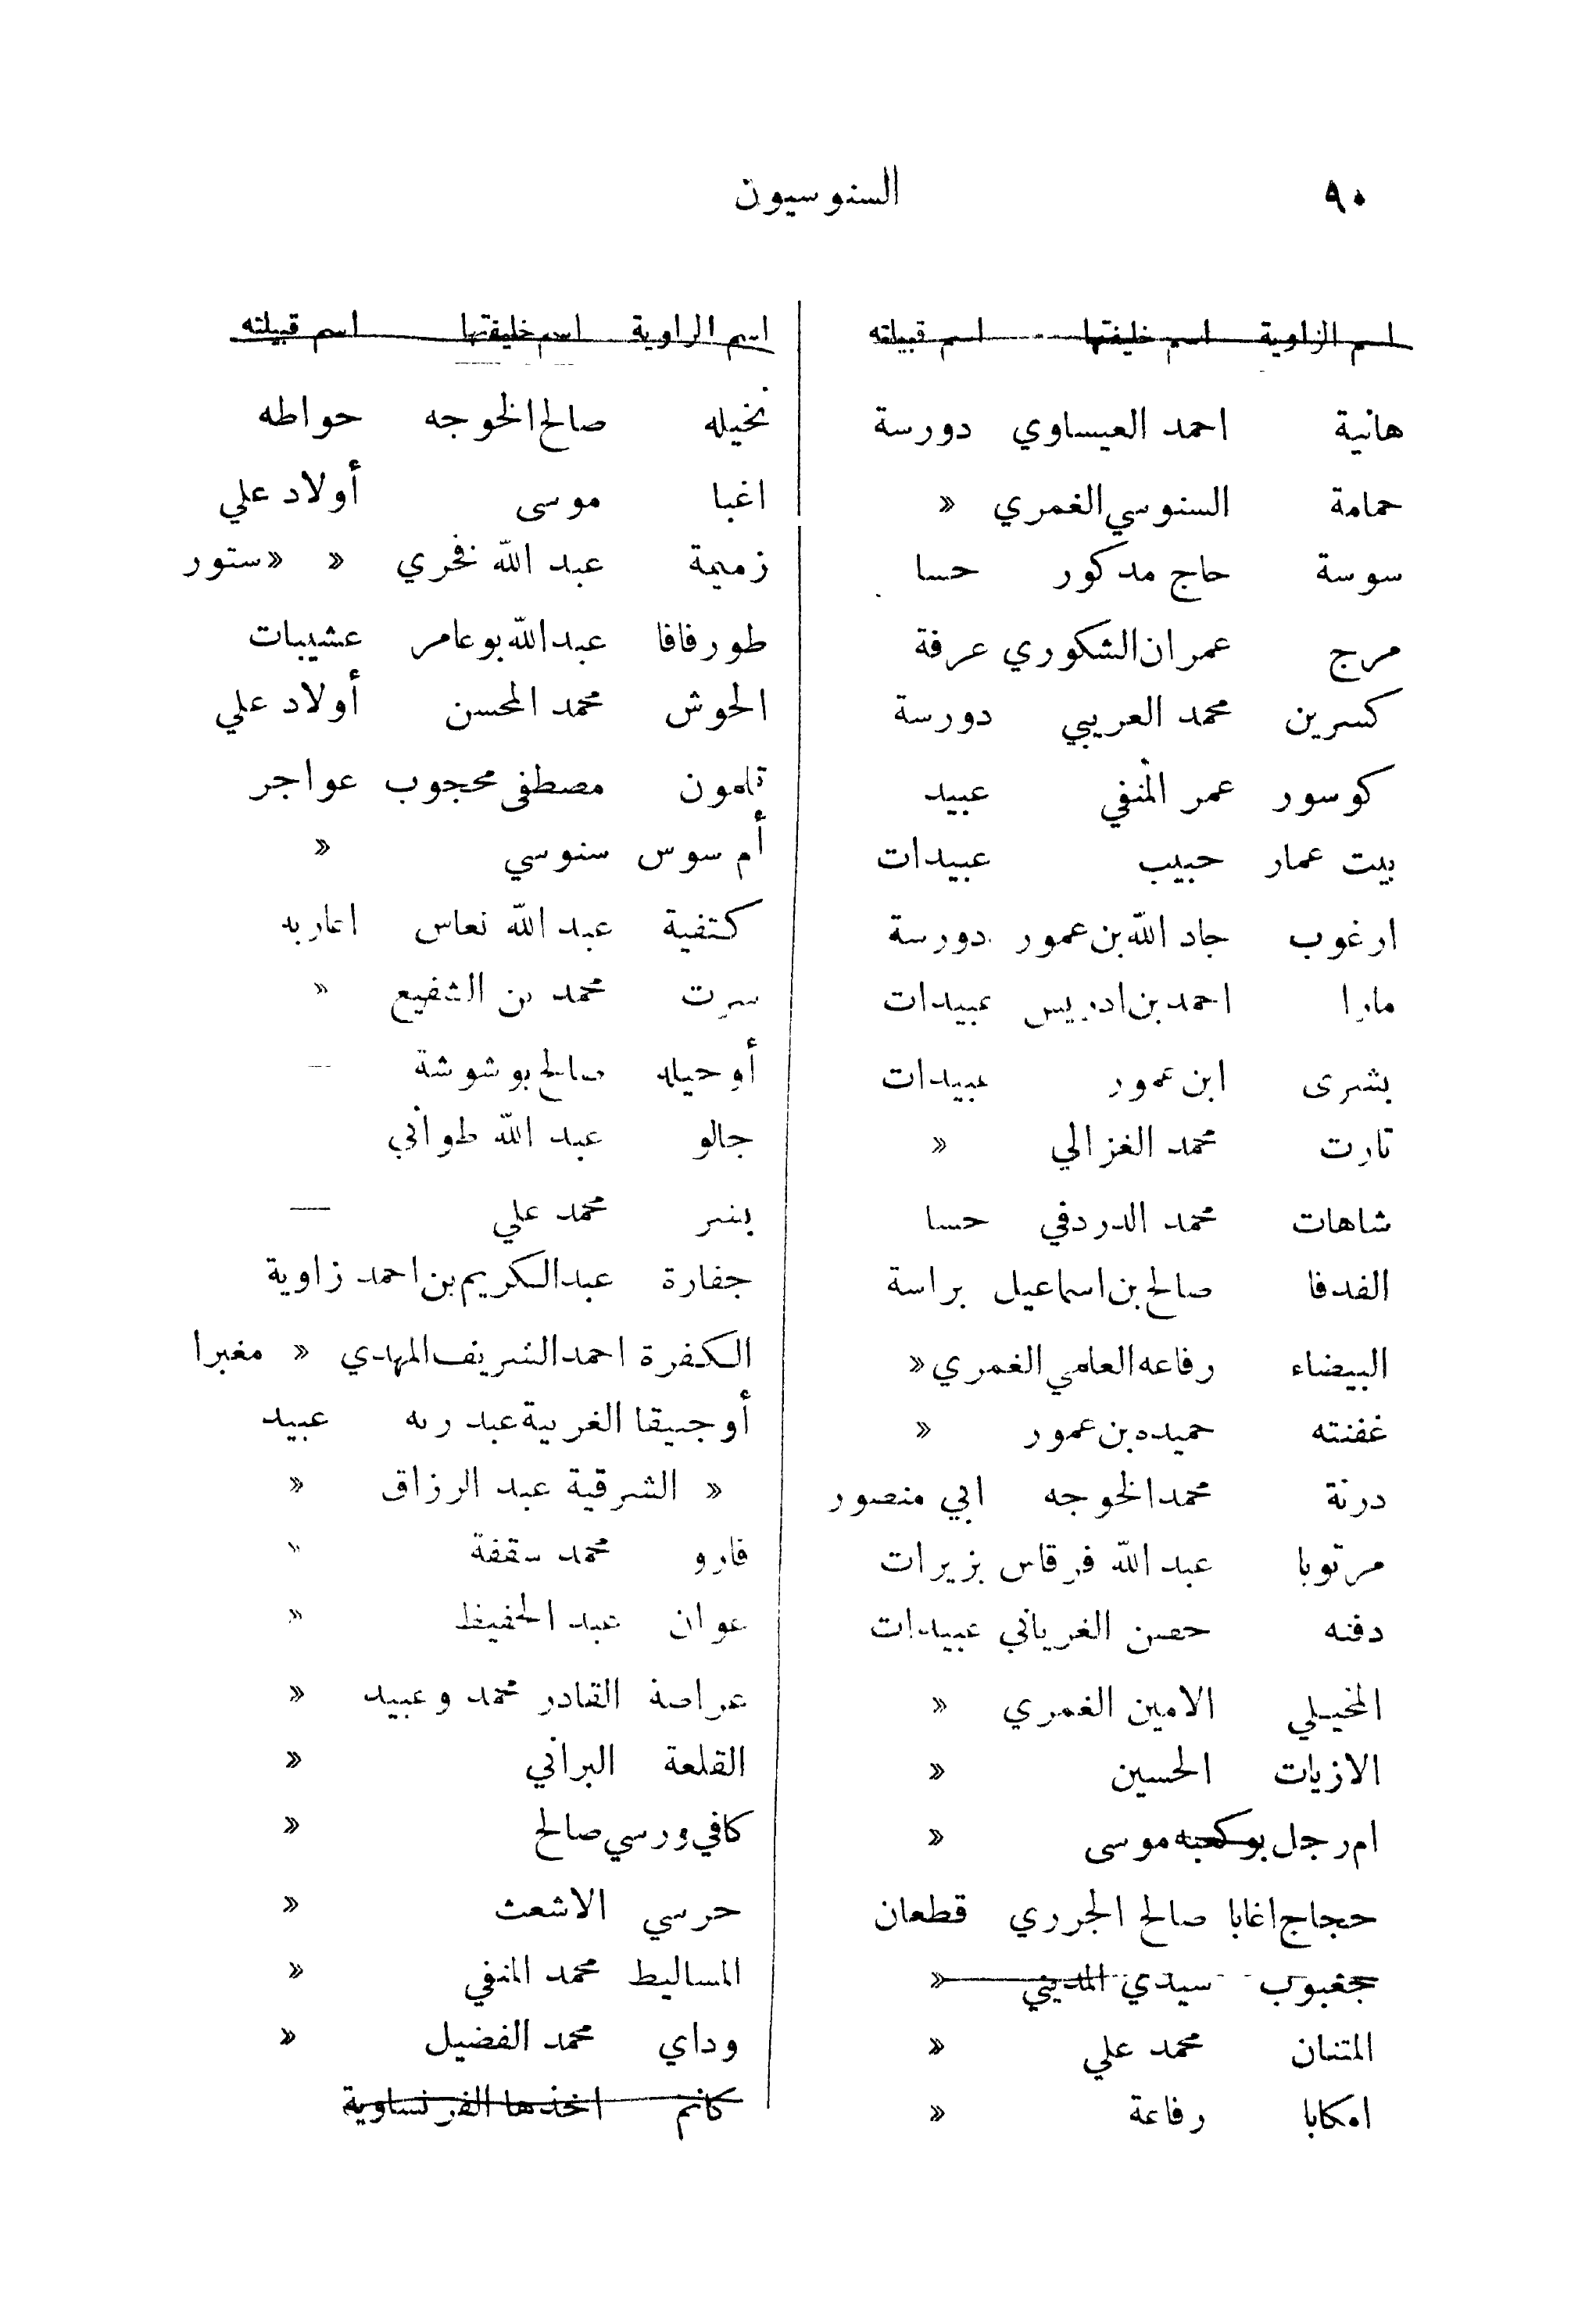 ٩٠ السنوسيون
اسم الزاوية اسم خليفتها اسم قبيلته
هانية احمد العيساوي دورسة
حمامة السنوسي الغمري «
سوسة حاج مدكور حسا
مرج عمران الشكوري عرفة
كسرين محمد العريبي دورسة
كوسور عمر المنفي عبيد
بيت عمار حبيب عبيدات
ارغوب جاد الله بن عمور دورسة
مارا احمد بن ادريس عبيدات
بشرى ابن عمور عبيدات
تارت محمد الغزالي «
شاهات محمد الدردفي حسا
الفدفا صالح بن اسماعيل براسة
البيضاء رفاعه العامي الغمري «
غفنته حميده بن عمور «
درنة محمد الخوجه ابي منصور
مرتوبا عبد الله فرقاس بزيرات
دفنه حسن الغرياني عبيدات
المخيلي الامين الغمري «
الازيات الحسين «
ام رجل بوكعبه موسى «
حجاج اغابا صالح الجرري قطعان
جغبوب سيدي المديني «
المتنان محمد علي «
امكابا رفاعة «
اسم الزاوية اسم خليفتها اسم قبيلته
نخيله صالح الخوجه حواطه
اغبا موسى أولاد علي
زميمة عبد الله نفخري « «ستور
طورفافا عبد الله بوعامر عشيبات
الحوش محمد المحسن أولاد علي
تلمون مصطفى محجوب عواجر
أم سوس سنوسي «
كتفية عبد الله نعاس اعاربه
سرت محمد بن الشفيع «
أوحيله صالح بوشوشة —
جالو عبد الله طواني
بنسر محمد علي —
جفارة عبد الكريم بن احمد زاوية
الكفرة احمد الشريف المهدي « مغبرا
أوجيقا الغربية عبد ربه عبيد
« الشرقية عبد الرزاق «
فارو محمد سقفة «
عوان عبد الحفيظ «
عراصة القادر محمد وعبيد «
القلعة البراني «
كافي ورسي صالح «
حرسي الاشعث «
المساليط محمد المنفي «
وداي محمد الفضيل «
كانم اخذها الفرنساوية